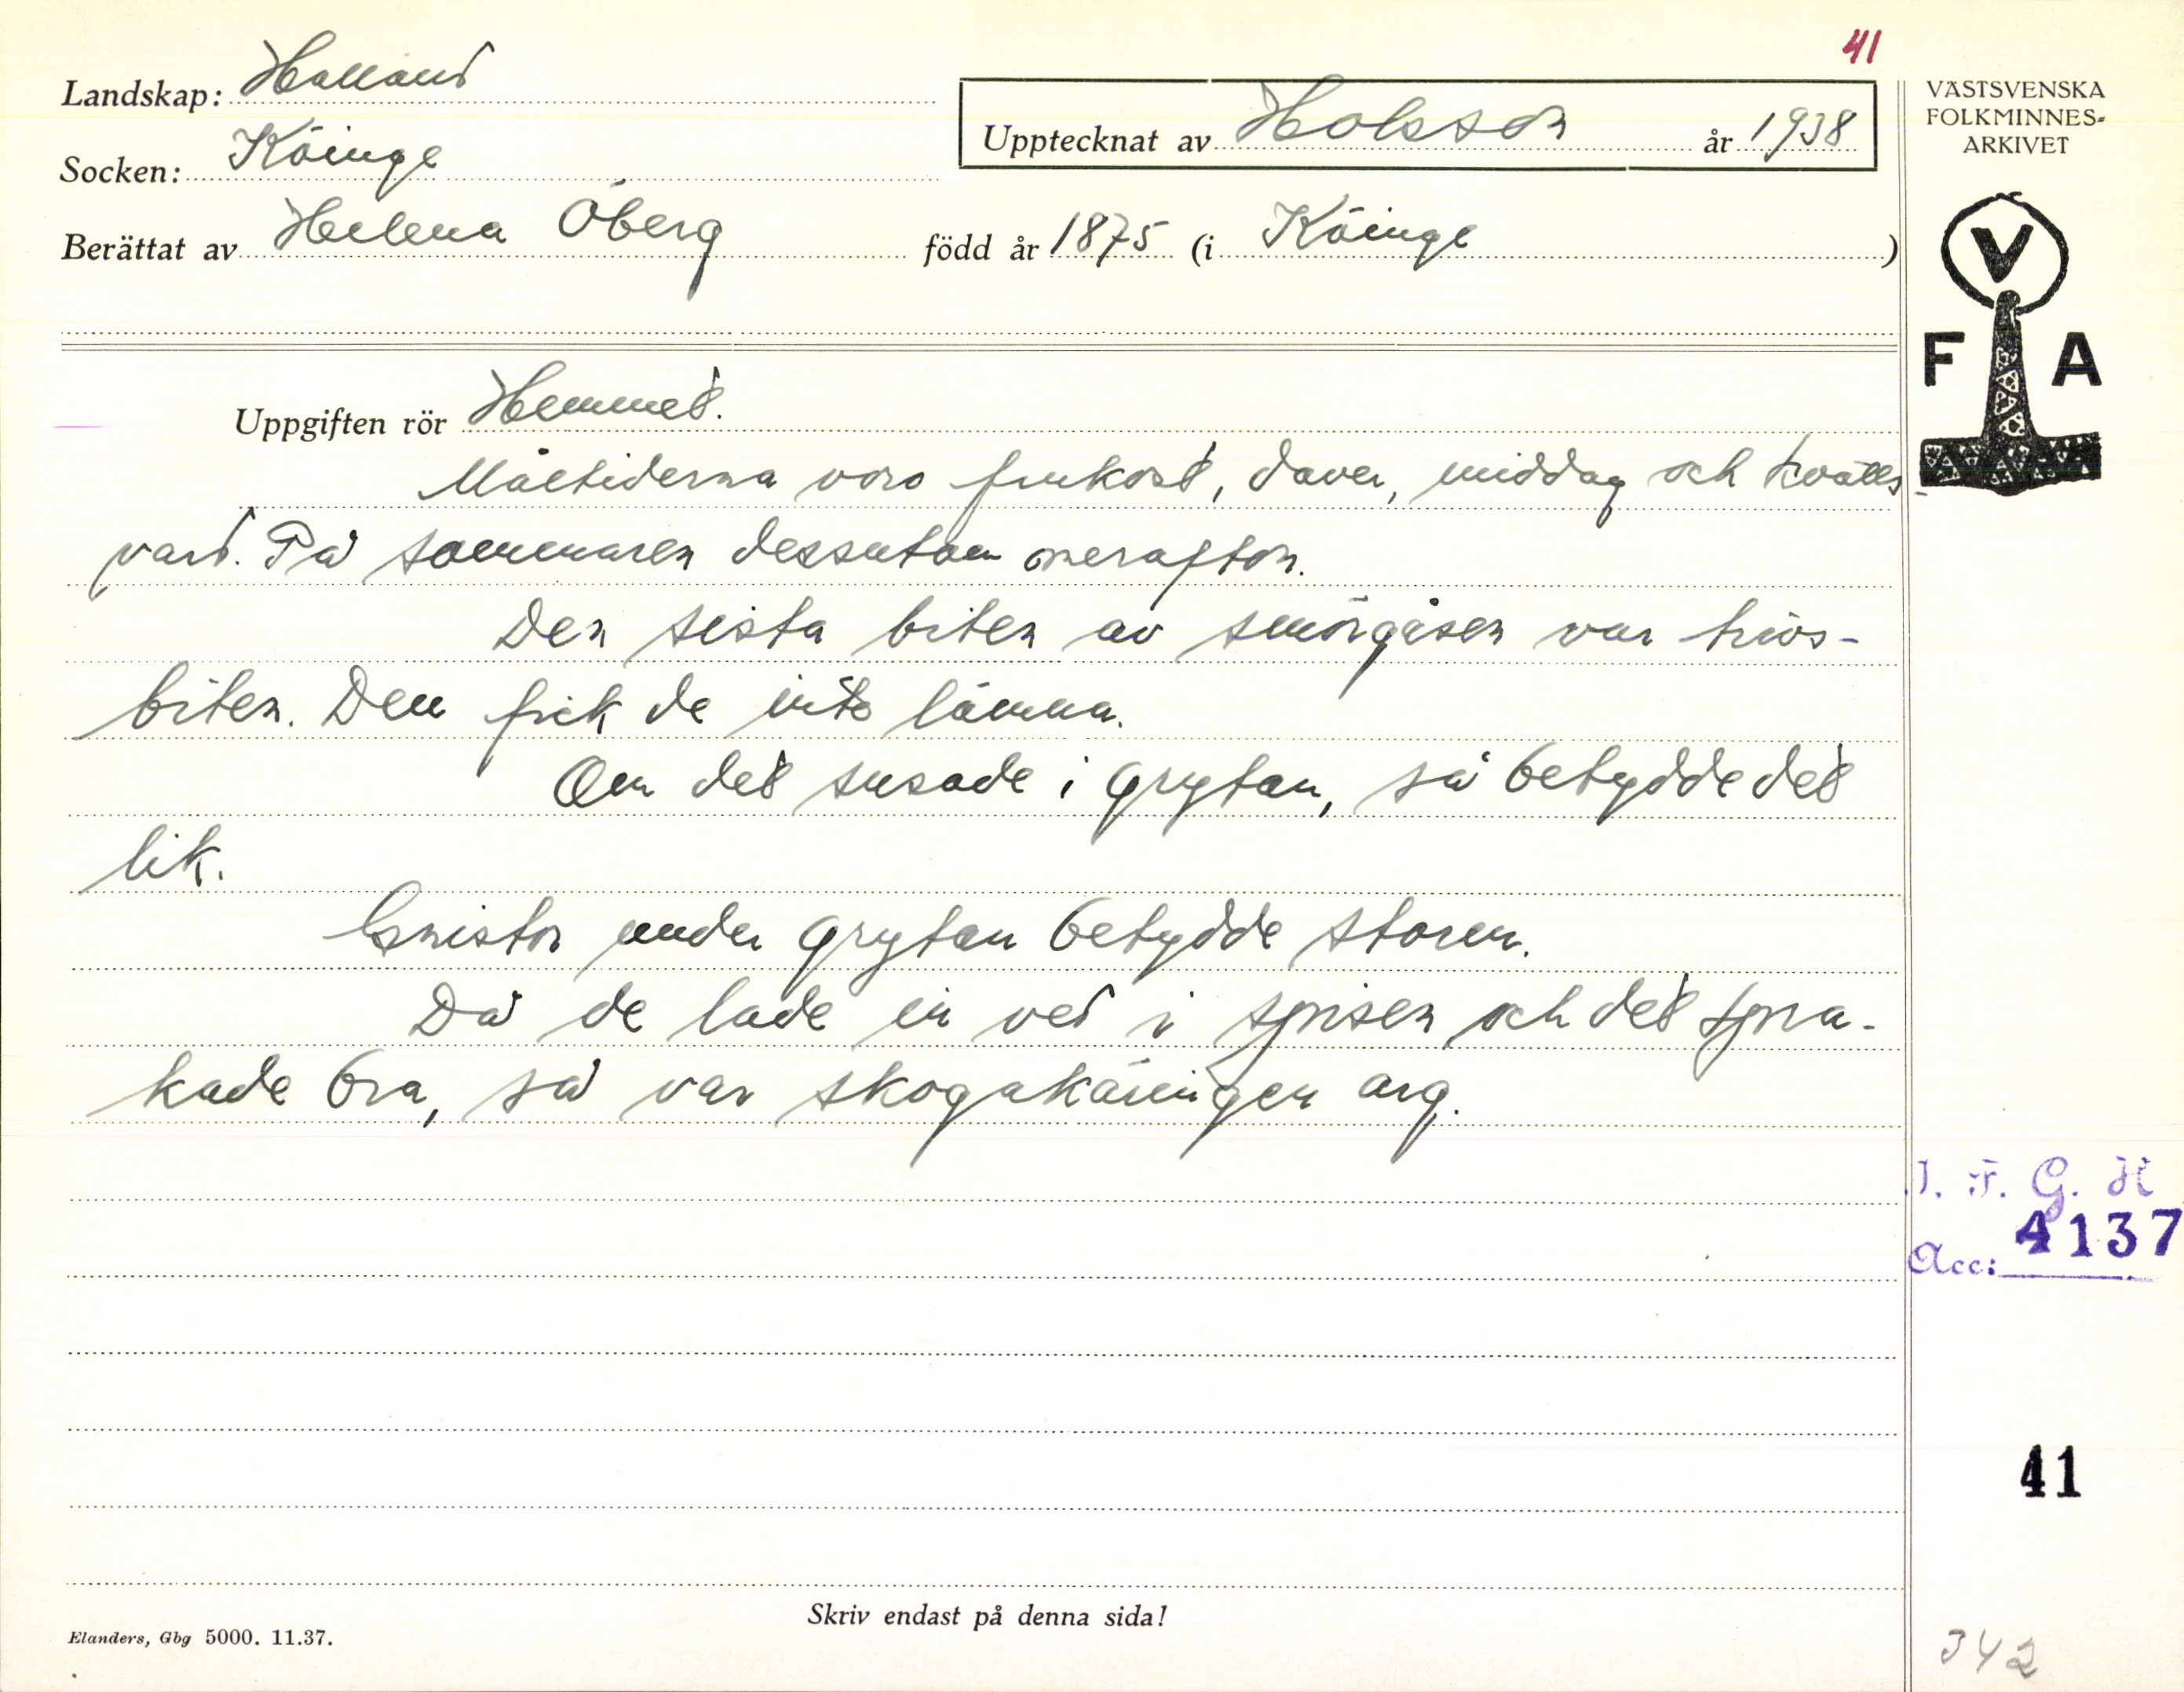 41
Landskap: Halland
Upptecknat av Holsson år 1938
Socken: Köinge
Berättat av Helena Öberg född år 1875 (i Köinge)
VÄSTSVENSKA
FOLKMINNES-
ARKIVET
V
F A
Uppgiften rör Hemmet.
Måltiderna voro frukost, daver, middag och kvälls-
vard. På sommaren dessutom merafton.
Den sista biten av smörgåsen var trivs-
biten. Den fick de inte lämna.
Om det susade i grytan, så betydde det
lik.
Gnistor under grytan betydde storm.
Då de lade in ved i spisen och det spra-
kade bra, så var skogakäringen arg.
I. F. G. H
Acc: 4137
41
Skriv endast på denna sida!
Elanders, Gbg 5000. 11.37.
342